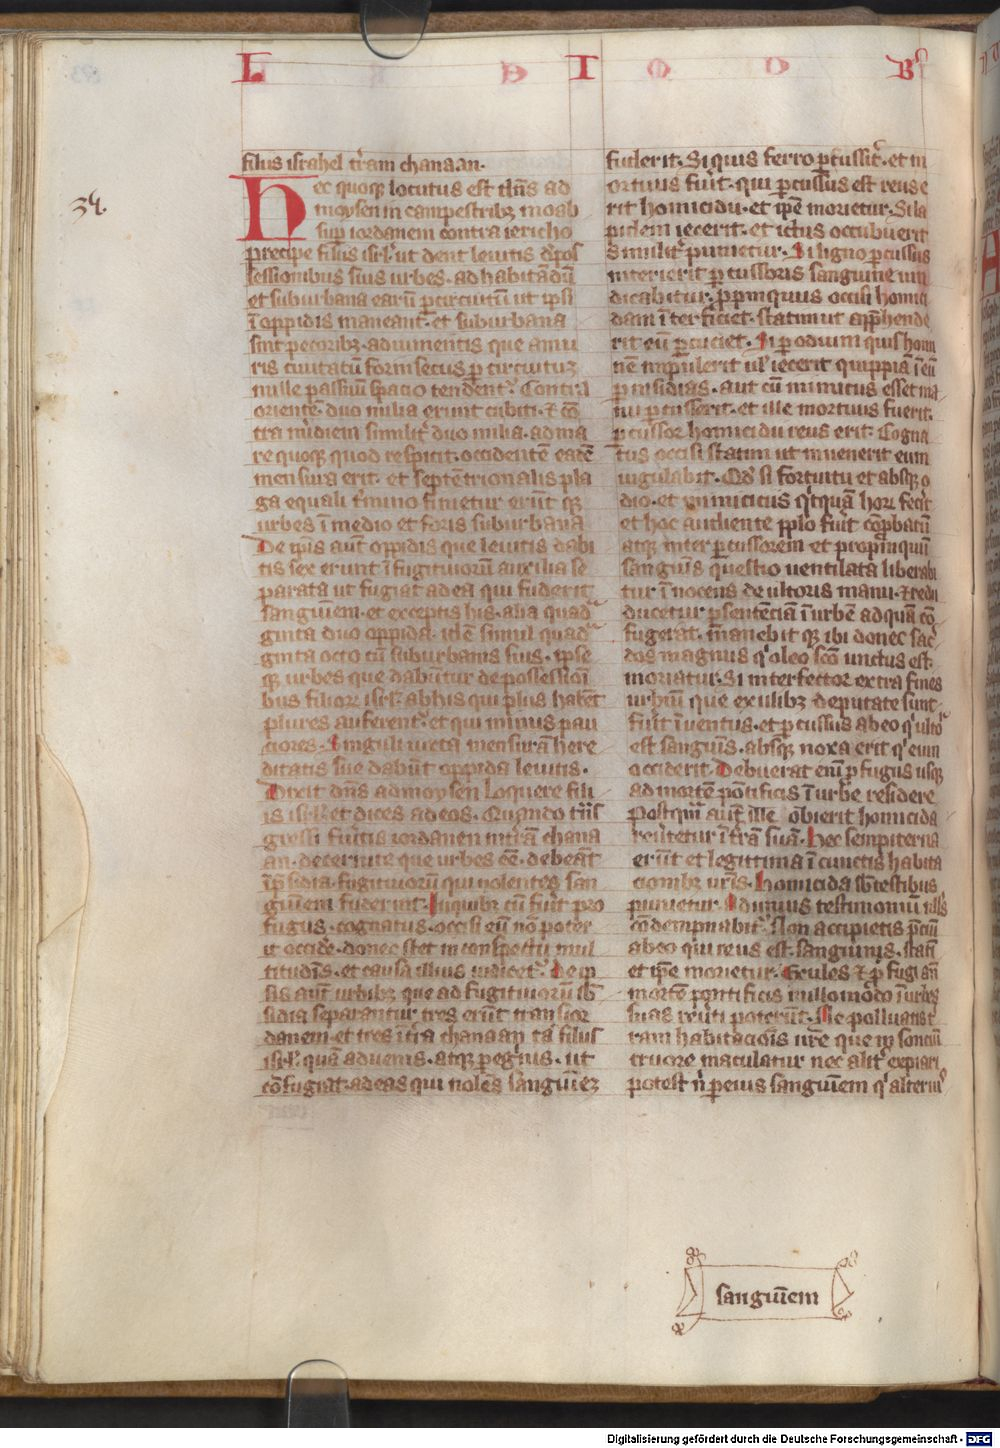 L I B'
34.
filius israhel t'ram chanaan.
Hec quoq; locutus est dñs ad
moysen in campestrib; moab
sup iordanem contra iericho
precipe filiis isrl' ut dent leuitis d'pos
sessionibus suis urbes. ad habitãdũ
et suburbana earũ p circuitũ ut ipsi
ĩ oppidis maneant. et suburbana
sint pecorib; ad iumentis que a mu
ris ciuitatũ forinsecus p circuitu;
mille passuum spacio tendent'. Contra
orientẽ. duo milia erunt cubiti. et cõ
tra m'diem similit' duo milia. ad ma
re quoq; quod respicit. occidentem eadẽ
mensura erit. et septẽtrionalis pla
ga equali t'mino finietur erũt q;
urbes ĩ medio et foris suburbana
De ip̃is aut̃ oppidis que leuitis dabi
tis sex erunt ĩ fugitiuorũ auxilia se
parata ut fugiat ad ea qui fuderit
sanguinem. et exceptis his. alia quad'
ginta duo oppida. id ẽ simul quad'
ginta octo cũ suburbanis suis. ipse
q; urbes que dabuntur de possessioni
bus filior isrl'. ab his qui plus habẽt
plures auferent'. et qui minus pau
ciores. Singuli iuxta mensurã here
ditatis sue dabũt oppida leuitis.
Dixit dñs ad moysen loquere fili
is isrl' et dices ad eos. Quando t'ns
gressi fu'itis iordanen in t'rã chana
an. decernite que urbes ẽẽ. debeãt
ĩ p'sidia. fugitiuorũ qui nolentes san
guinem fuderint. In quib; cũ fu'it pro
fugus. cognatus. occisi eũ nõ pot'er
it occide'. donec stet in conspectu mul
titudĩs. et causa illius iudicet'. De ip
sis aut̃ urbib; que ad fugitiuorũ sb̃
sidia separantur tres erũt trans ior
danem. et tres ĩ t'ra chanaan tã filiis
isrl'. quã aduenis. atq; peg'nis. ut
cõfugiat. ad eas qui nolẽs sanguinẽ
fuderit. Si quis ferro p cussit'. et m
ortuus fu'it. qui p cussus est reus e
rit homicidii. et ip̃e morietur. Si la
pidem iecerit. et ictus occubuerit
similit' punietur. Si ligno p cussus
interierit p cussoris sanguine uin
dicabitur. p pinquus occisi homici
dam ĩterficiet. statim ut app̃hende
rit eũ p cuciet. Si p odium quis homi
nẽ impulerit ul' iecerit quippiã ĩ eũ
p insidias. aut cũ inimicus esset ma
nu p cusserit. et ille mortuus fuerit.
p cussor homicidii reus erit. Cogna
tus occisi statim ut inuenerit eum
iugulabit. Qd' si fortuitu et absq; o
dio. et inimicitiis q'cquã hor fec'it
et hoc audiente pp̃lo fu'it cõp batũ
atq; inter p cussorem et propinquũ
sanguis questio uentilata liberabi
tur ĩnocens de ultoris manu. et redu
ducetur p sentẽciã ĩ urbẽ ad quã cõ
fugerat. manebit q; ibi donec sac'
dos magnus q' oleo scõ unctus est.
moriatur. Si interfector extra fines
urbiũ que exulib; deputate sunt.
fu'it ĩuentus. et p cussus ab eo q' ultor
est sanguis. absq; noxa erit q' eum
occiderit. Debuerat enĩ p fugus usq;
ad mortem põtificis ĩ urbe residere
Postq̃ã aut̃ ille obierit homicida
reu'tetur ĩ t'rã suã. Hec sempiterna
erũt et legittima ĩ cunctis habita
cionib; uris. Homicida sb̃ testibus
punietur. Ad unius testimoniũ null's
cõdempnabit'. Non accipietis p̃ciũ
ab eo qui reus est. sanguinis. statĩ
et ip̃e morietur. Exules et p fugi añ
mortẽ pontificis nullo modo ĩ urbes
suas reu'ti poterũt. Ne polluatis t'
ram habitaciois ur̃e que in sonciũ
cruore maculatur nec alit' expiari
potest n' p eius sanguinem q' alteri'
sanguinem
Digitalisierung gefördert durch die Deutsche Forschungsgemeinschaft - DFG